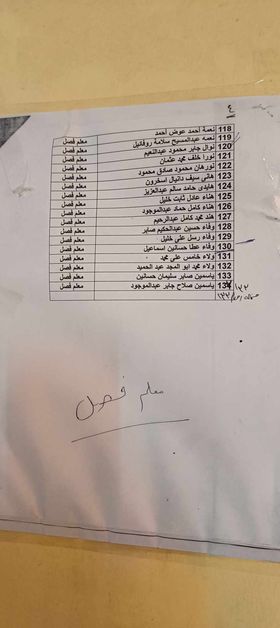 ٤
118 نعمة أحمد عوض أحمد معلم فصل
119 نعمه عبدالمسيح سلامة روفائيل معلم فصل
120 نوال جابر محمود عبدالنعيم معلم فصل
121 نورا خلف محمد عثمان معلم فصل
122 نورهان محمود صادق محمود معلم فصل
123 هاني سيف دانيال اسخرون معلم فصل
124 هايدى حامد سالم عبدالعزيز معلم فصل
125 هناء عادل ثابت خليل معلم فصل
126 هناء كامل حماد عبدالموجود معلم فصل
127 هند محمد كامل عبدالرحيم معلم فصل
128 وفاء حسين عبدالحكيم صابر معلم فصل
129 وفاء رسل على خليل معلم فصل
130 وفاء عطا حسانين اسماعيل معلم فصل
131 ولاء خامس على محمد معلم فصل
132 ولاء محمد ابو المجد عبد الحميد معلم فصل
133 ياسمين صابر سليمان حسانين معلم فصل
134 ياسمين صلاح جابر عبدالموجود معلم فصل
١٣٢
معلم فصل